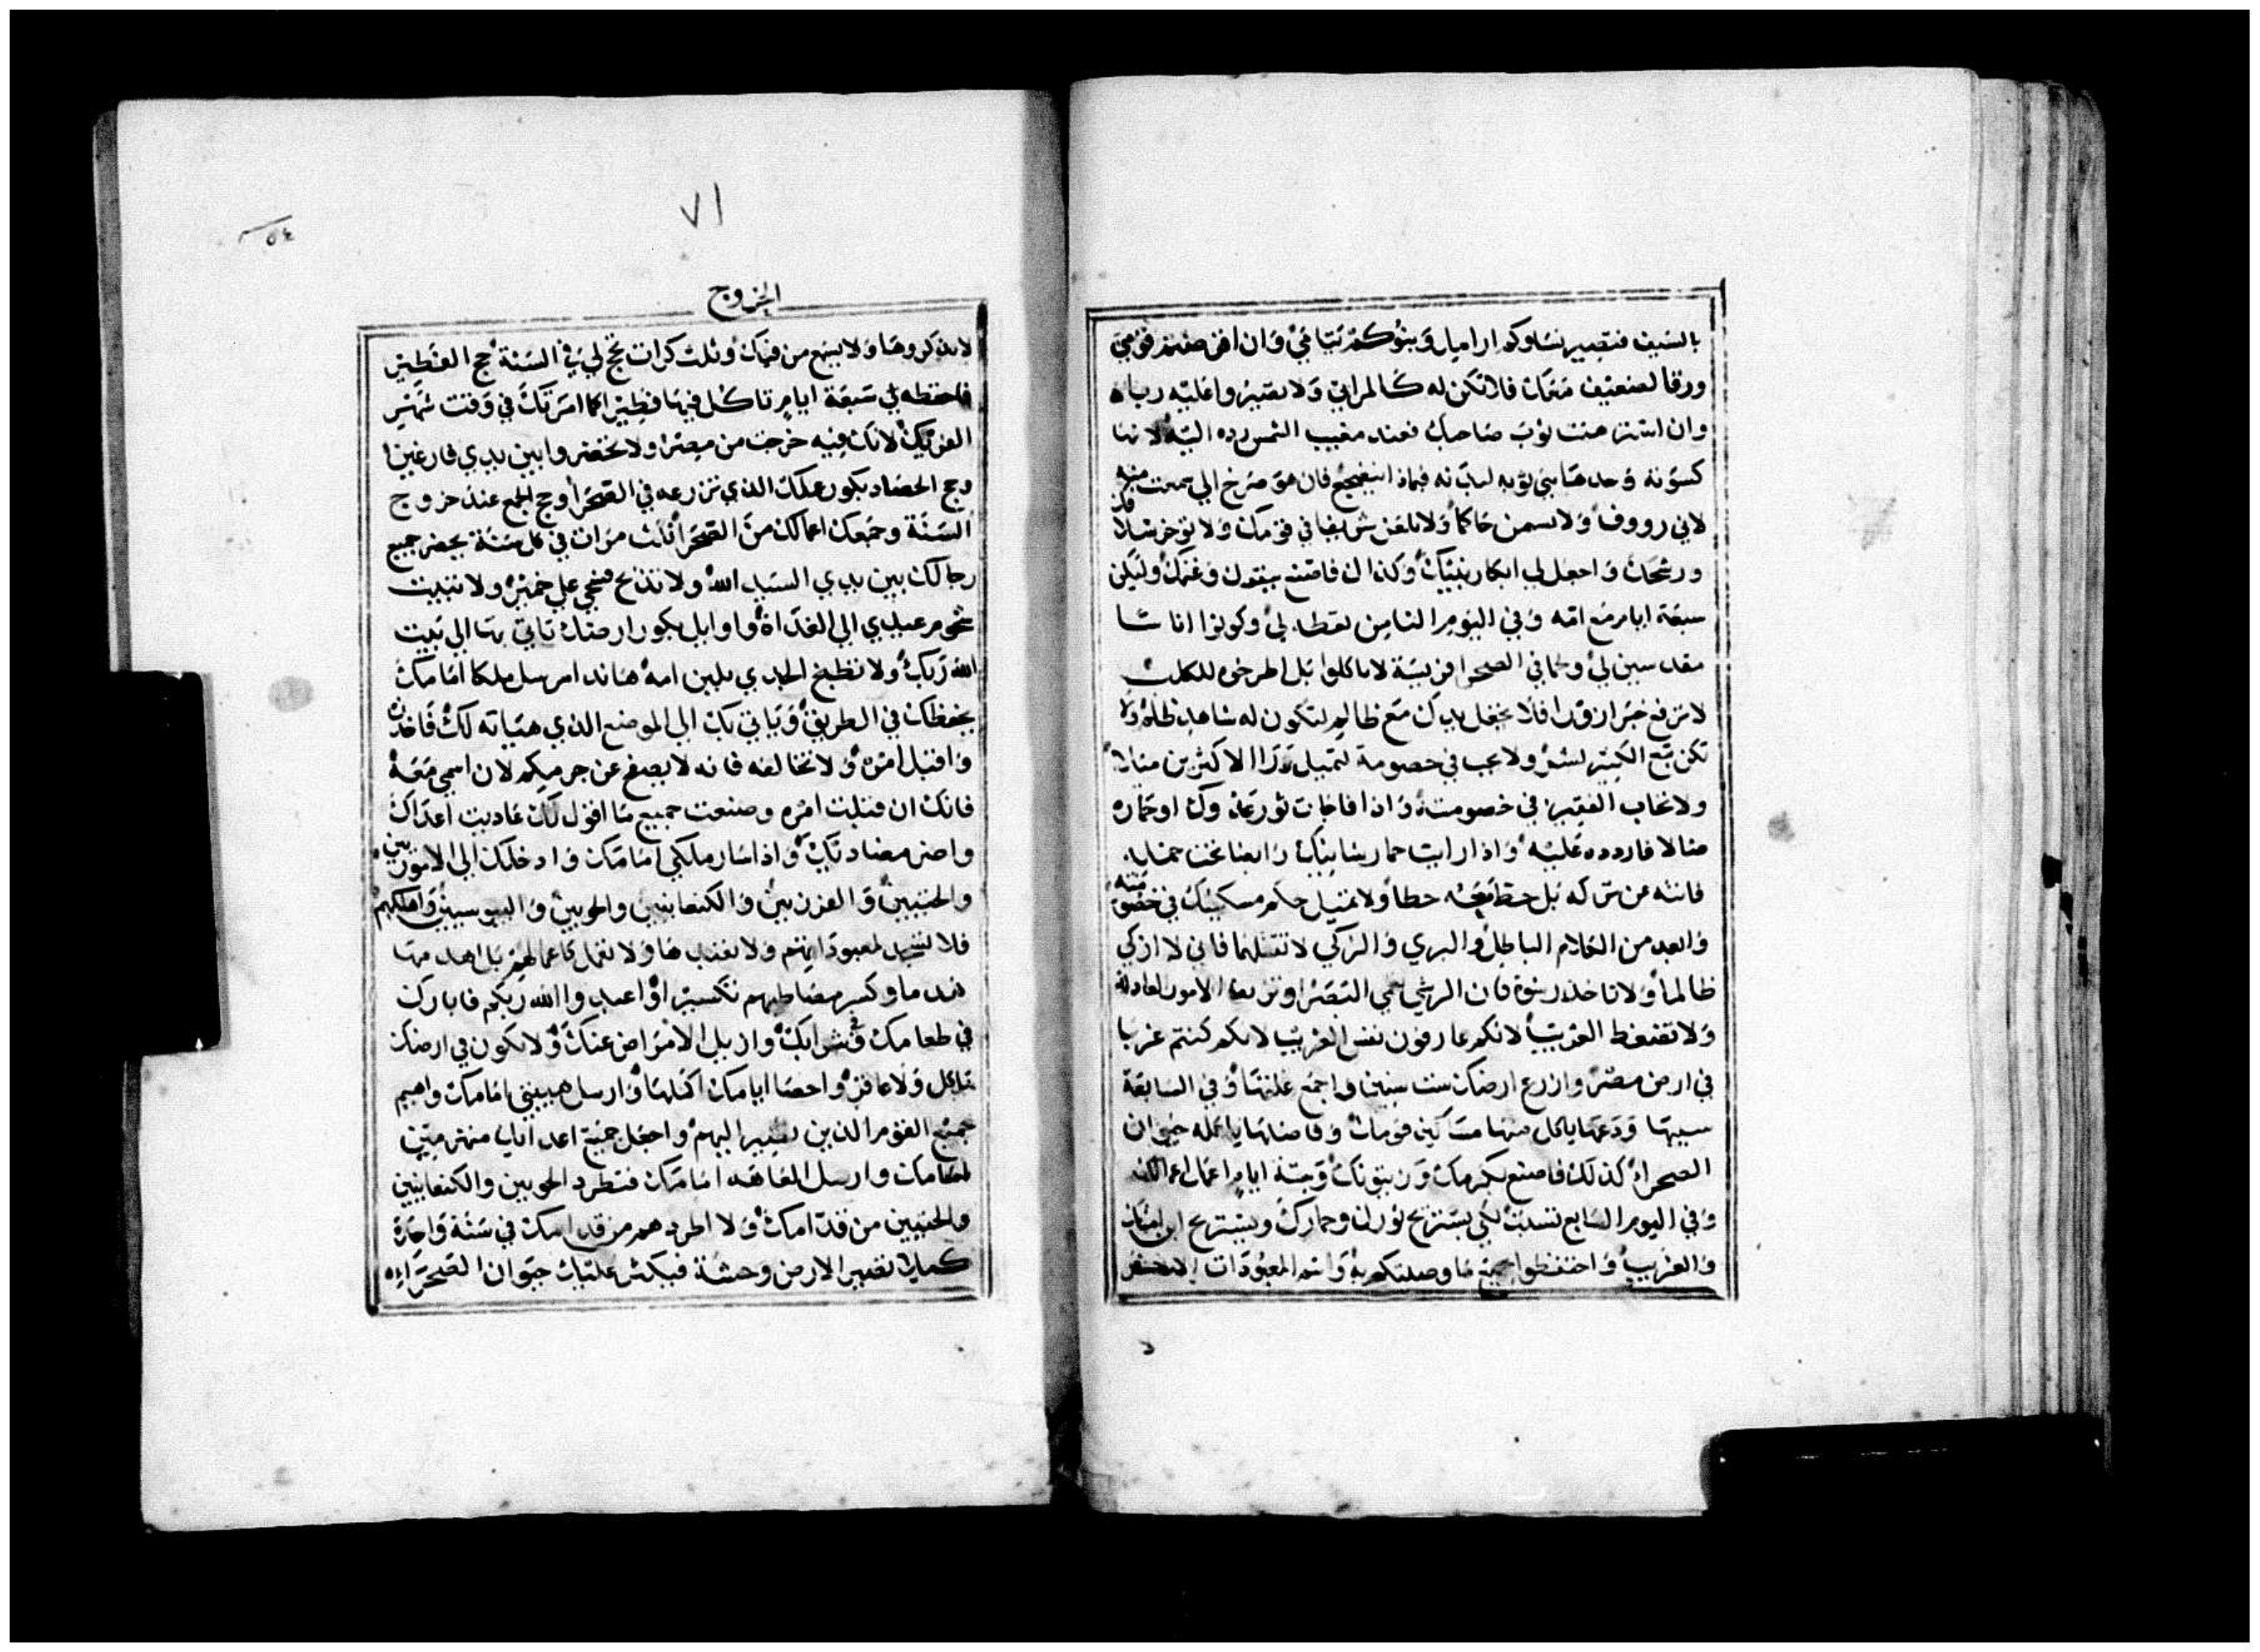 بالسيف فتصير نساوكم اراميل وبنوكم يتامي وان اقرضتم قومي
ورقا لضعيف معك فلا تكن له كالمرابي ولا تصيروا عليه رباه
وان استرهنت توب صاحبك فعند مغيب الشمس رده اليه لانها
كسوته وحدها هي توبه لبدنه فبماذا ينضجع فان هو صرخ الي سمعت منه
لاني رووف ولا تسبن حاكما ولا تلعن شريفا في قومك ولا توخر سلافك
ورشحك واجعل لي ابكار بنيك وكذلك فاصنع ببقرك وغنمك وليكن
سبعة ايام مع امه وفي اليوم الثامن تعطه لي وكونوا اناسا
مقدسين لي ولحما في الصحرا فريسة لا تاكلوا بل اطرحوه للكلب
لا ترفع خبرا زورا فلا تجعل يدك مع ظالم لتكون له شاهد ظلم ولا
تكن تبع الكبير لشر ولا تجب في خصومة لتميل ورا الاكثرين ميلا
ولا تحاب الفقير في خصومته واذا فاجات ثور عدوك او حماره
ضالا فاردده عليه واذا رايت حمار شانيك رابضا تحت حمله
فانته عن تركه بل حط معه حطا ولا تميل حكم مسكينك في خصومته
وابعد من الكلام الباطل والبري والزكي لا تقتلهما فاني لا ازكي
ظالما ولا تاخذ رشوة فان الرشي تعمي البصرا وتزيف الامور العادلة
ولا تضغط الغريب لانكم عارفون نفس الغريب لانكم كنتم غربا
في ارض مصر وازرع ارضك ست سنين واجمع غلتها وفي السابعة
سيبها ودعها ياكل منها مساكين قومك وفاضلها ياكله حيوان
الصحرا كذلك فاصنع بكرمك وزيتونك وستة ايام اعمل اعمالك
وفي اليوم السابع تسبت لكي يستريح ثورك وحمارك ويستريح ابن امتك
والغريب واحتفظوا جميع ما وصيتكم به واسم المعبودات الاخر
٧١
٥٤
الخروج
لا تذكروها ولا يسمع من فمك وثلث كرات تحج لي في السنة حج الفطير
فاحفظه لي سبعة ايام تاكل فيها فطيرا كما امرتك في وقت شهر
الفريك لانك فيه خرجت من مصر ولا تحضروا بين يدي فارغين
وحج الحصاد بكور عملك الذي تزرعه في الصحرا وحج الجمع عند خروج
السنة وجمعك اعمالك من الصحرا ثلث مرات في كل سنة يحضر جميع
رجالك بين يدي السيد الله ولا تذبح ذبحي علي خمير ولا تبيت
شحوم عيدي الي الغداة واوايل بكور ارضك تاتي بها الي بيت
الله ربك ولا تطبخ الجدي بلبن امه هاندا مرسل ملكا امامك
يحفظك في الطريق وياتي بك الي الموضع الذي هياته لك فاحذره
واقبل امره ولا تخالفه فانه لا يصفح عن جرمكم لان اسمي معه
فانك ان قبلت امره وصنعت جميع ما اقول لك عاديت اعداك
واضر مضاديك واذا سار ملكي امامك وادخلك الي الاموريين
والحيثيين والفرزيين والكنعانيين والحويين واليبوسيين واهلكهم
فلا تسجد لمعبوداتهم ولا تعبدها ولا تعمل كاعمالهم بل اهدمها
هدما وكسر مضاطبهم تكسيرا واعبدوا الله ربكم فابارك
في طعامك وشرابك وازيل الامراض عنك ولا تكون في ارضك
ثاكل ولا عاقر واحصا ايامك اكملها وارسل هيبتي امامك واهيم
جميع القوم الذين تصير اليهم واجعل جميع اعداك منهزمين
امامك وارسل العاهة امامك فتطرد الحويين والكنعانيين
والحيثيين من قدامك ولا اطردهم من قدامك في سنة واحدة
كيلا تصير الارض وحشة فيكثر عليك حيوان الصحراء